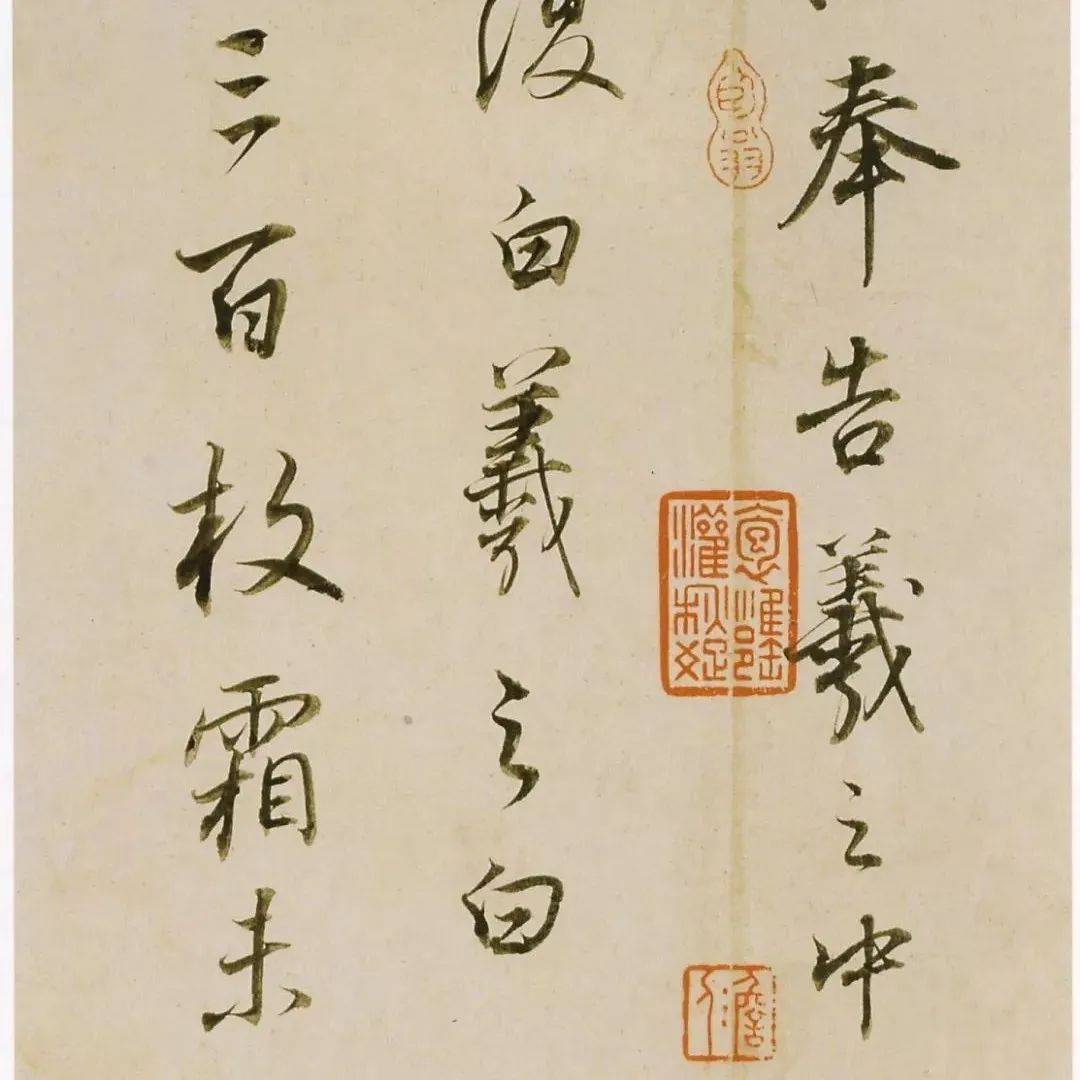 奉告羲之中
復白羲之白
三百枚霜未